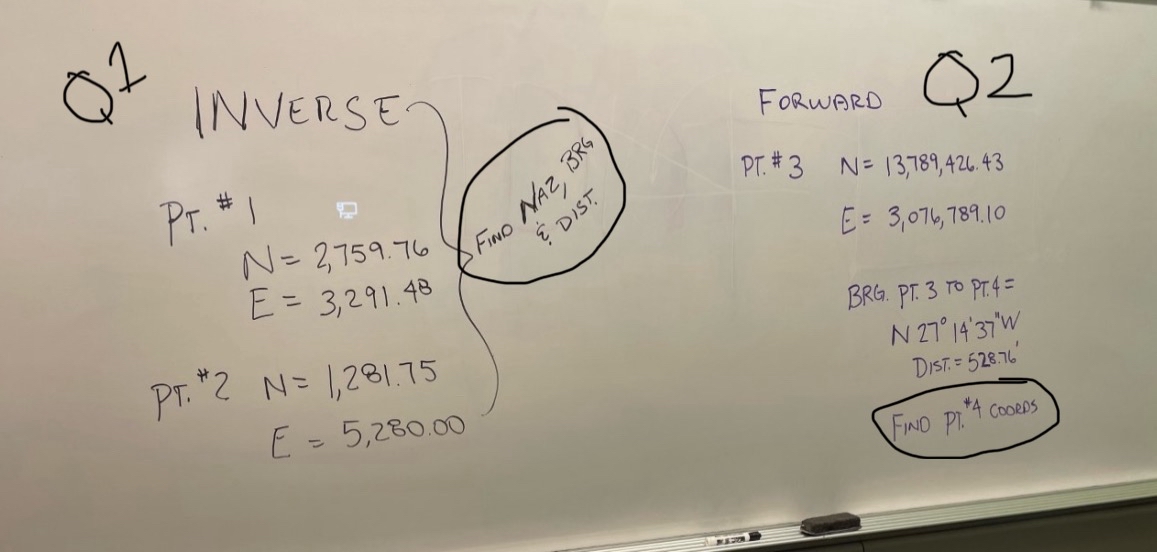 Q1
INVERSE
PT. #1
N = 2,759.76
E = 3,291.48
PT. #2 N = 1,281.75
E = 5,280.00
FIND NAZ, BRG
& DIST.
Q2
FORWARD
PT. #3 N = 13,789,426.43
E = 3,076,789.10
BRG. PT. 3 TO PT.4 =
N 27° 14' 37" W
DIST. = 528.76'
FIND PT. #4 COORDS